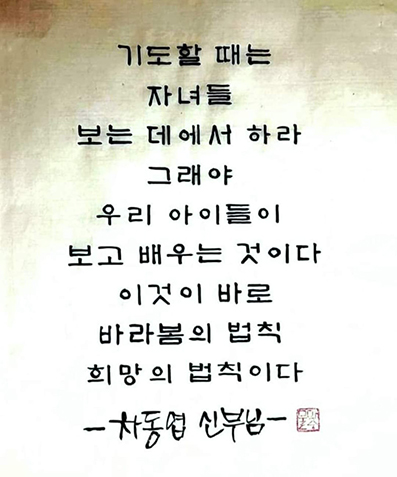 기도할 때는
자녀들
보는 데에서 하라
그래야
우리 아이들이
보고 배우는 것이다
이것이 바로
바라봄의 법칙
희망의 법칙이다
-차동엽 신부님-